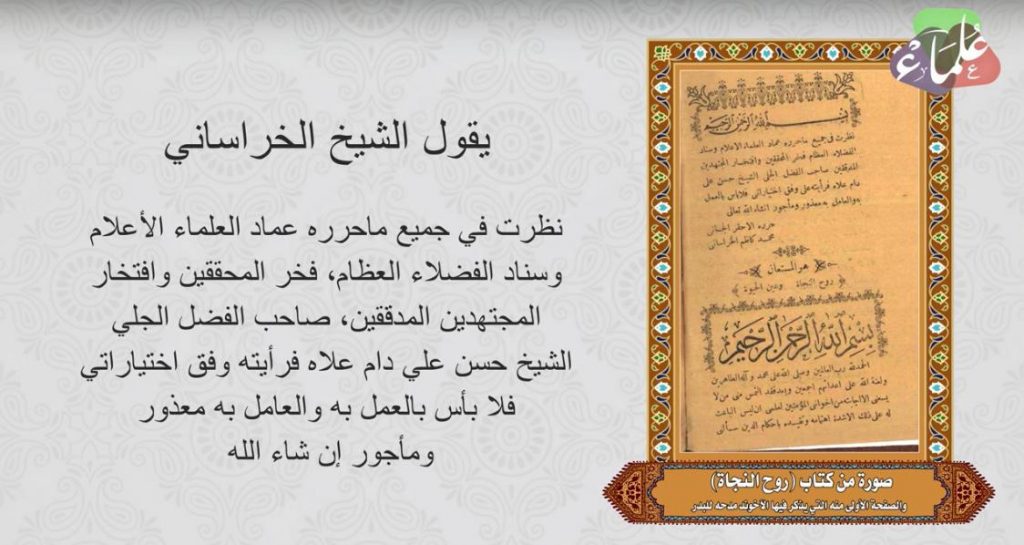 علماء
يقول الشيخ الخراساني
نظرت في جميع ماحرره عماد العلماء الأعلام
وسناد الفضلاء العظام، فخر المحققين وافتخار
المجتهدين المدققين، صاحب الفضل الجلي
الشيخ حسن علي دام علاه فرأيته وفق اختياراتي
فلا بأس بالعمل به والعامل به معذور
ومأجور إن شاء الله
بسم الله الرحمن الرحيم
نظرت في جميع ماحرره عماد العلماء الاعلام وسناد
الفضلاء العظام فخر المحققين وافتخار المجتهدين
المدققين صاحب الفضل الجلي الشيخ حسن علي
دام علاه فرأيته على وفق اختياراتي فلاباس بالعمل
به والعامل به معذور ومأجور انشاء الله تعالى
حرره الاحقر الجاني
محمد كاظم الخراساني
هو المستعان
روح النجاة وعين الحيوة
بسم الله الرحمن الرحيم
الحمد لله رب العالمين وصلى الله على محمد وآله الطاهرين
ولعنة الله على اعدائهم اجمعين وبعد فقد التمس مني من لا
يسعني الا اجابته من اخواني المؤمنين لعلمي ان ليس الباعث
له على ذلك الا شدة اهتمامه وتقيده باحكام الدين
صورة من كتاب (روح النجاة)
والصفحة الأولى منه التي يذكر فيها الآخوند مدحه للبدر